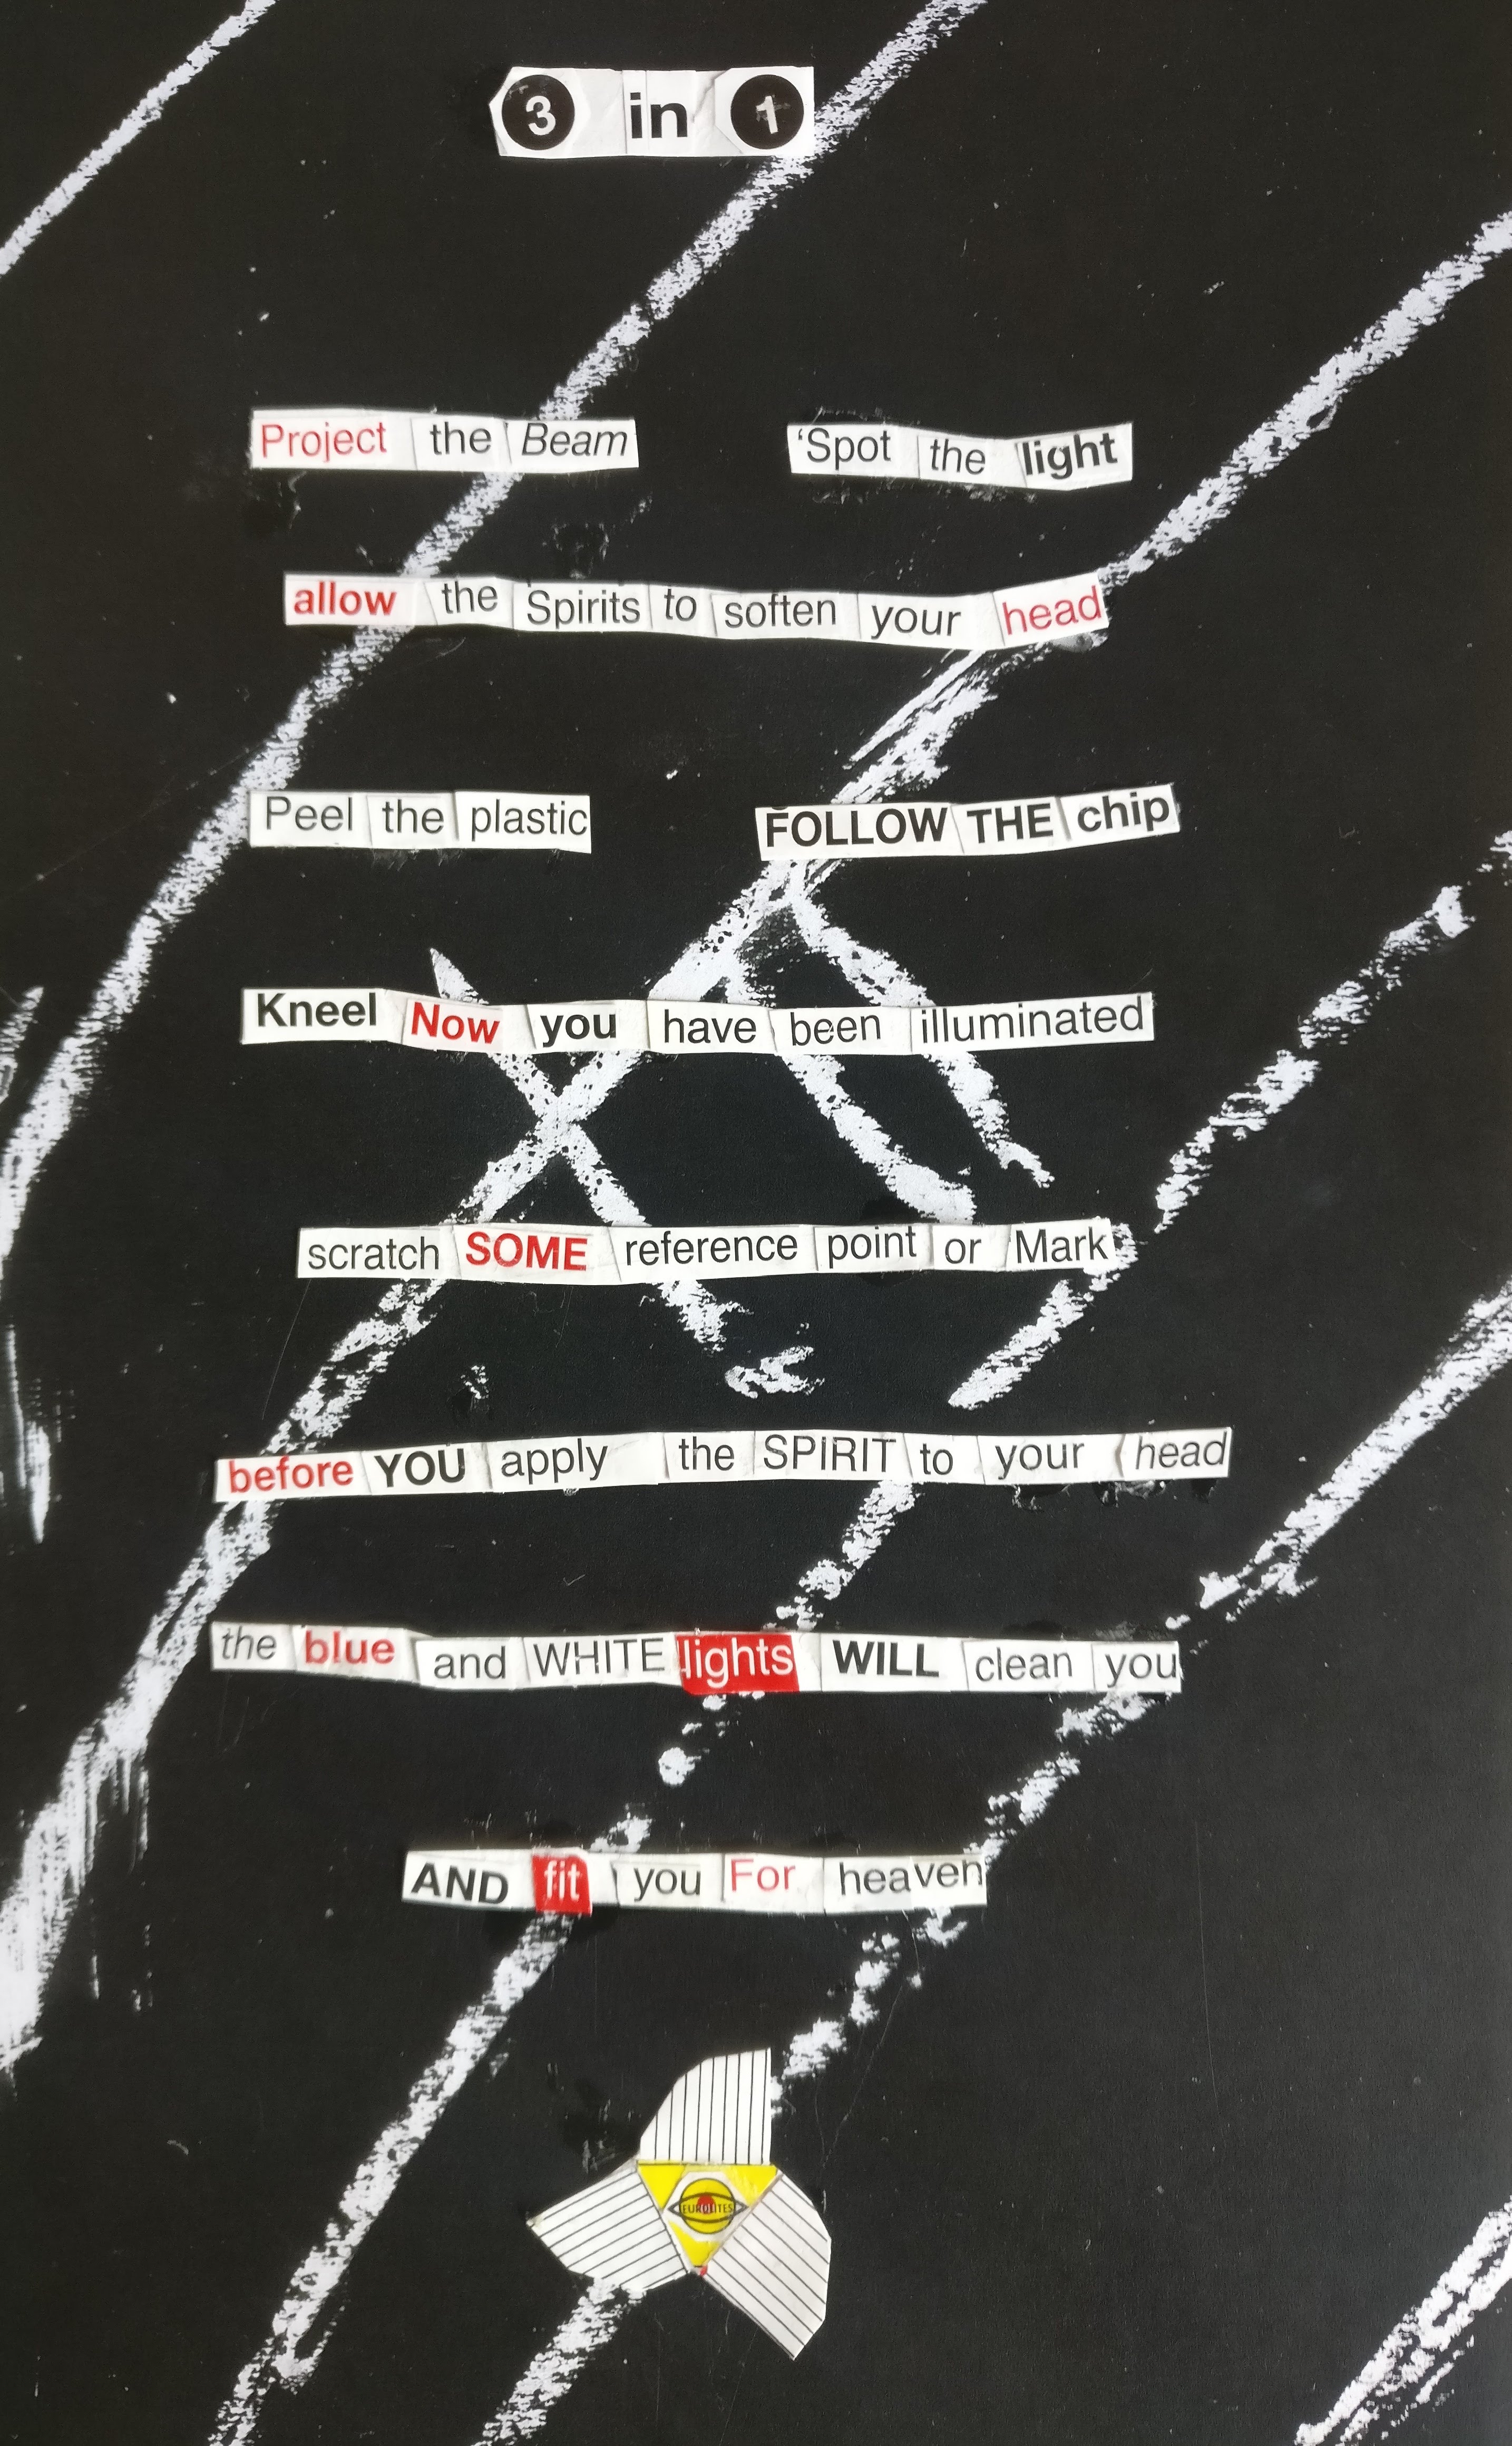 3 in 1
Project the Beam 'Spot the light
allow the Spirits to soften your head
Peel the plastic FOLLOW THE chip
Kneel Now you have been illuminated
scratch SOME reference point or Mark
before YOU apply the SPIRIT to your head
the blue and WHITE lights WILL clean you
AND fit you For heaven
EUROLITES